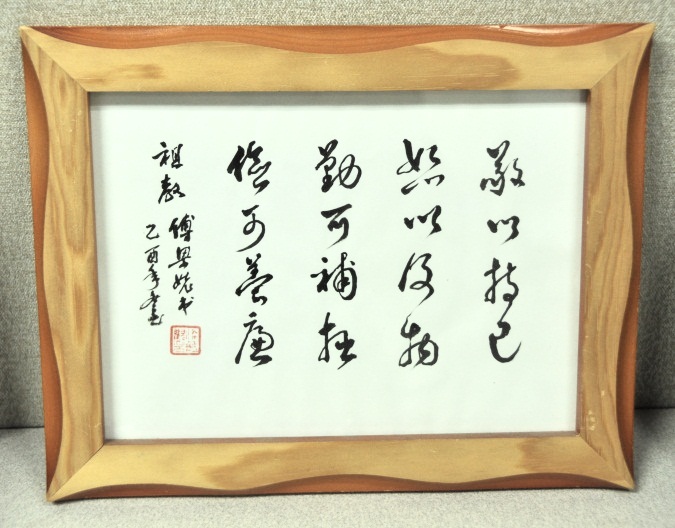 敬以持己
恕以及物
勤可補拙
儉可養廉
祖教
傅 书
乙酉年